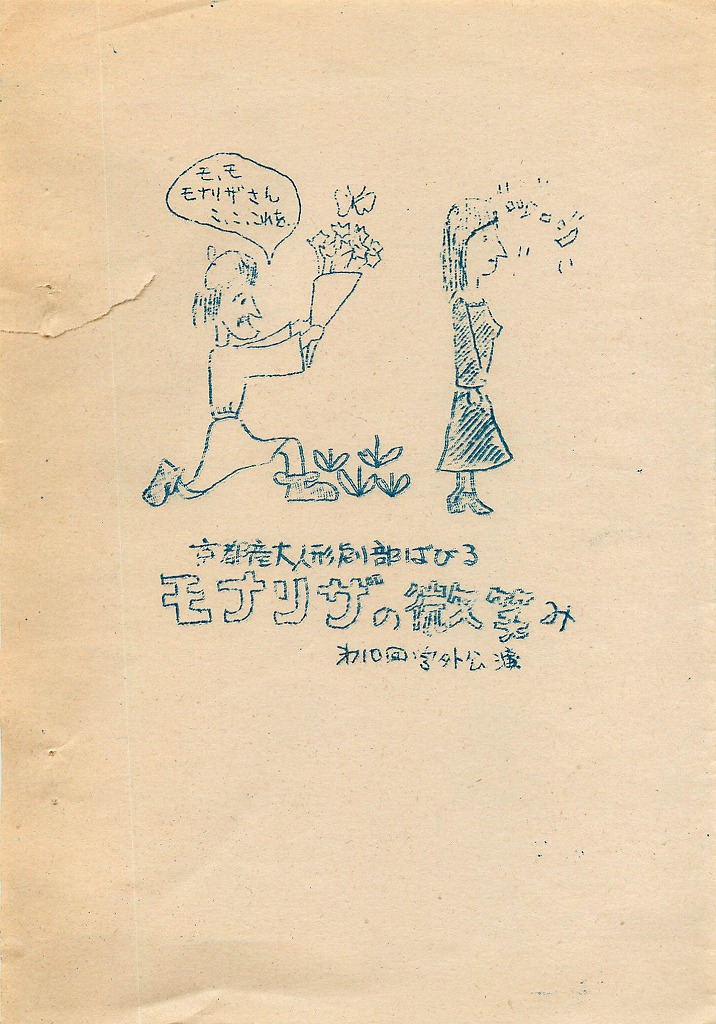 モ、モ
モナリザさん
こ、こ、これを
京都産大人形劇部ぱぴる
モナリザの微笑み
オ10回学外公演